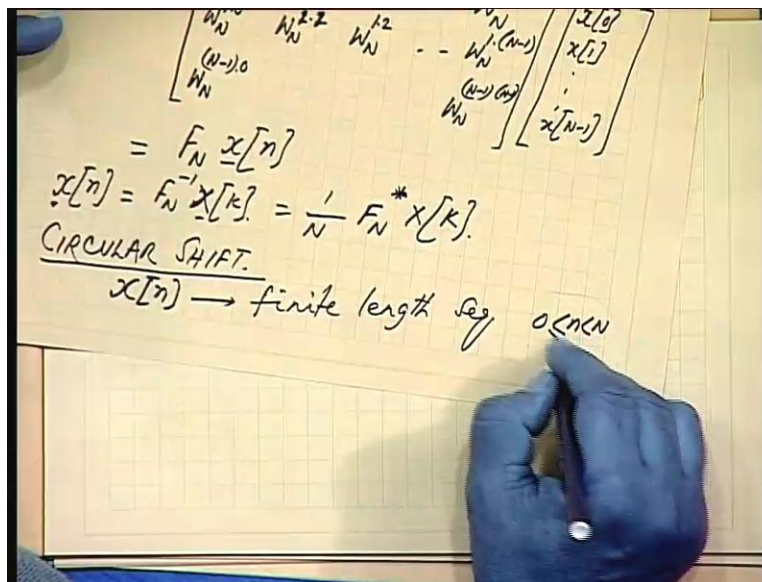 W_N^{2·2} W_N^{1·2} W_N x[0]
-- W_N^{1·(N-1)} x[1]
W_N^{(N-1)·0} W_N^{(N-1)(N-1)} :
x[N-1]
= F_N x[n]
x[n] = F_N^{-1} X[k]. = 1/N F_N^* X[k].
CIRCULAR SHIFT.
x[n] → finite length seq 0≤n<N